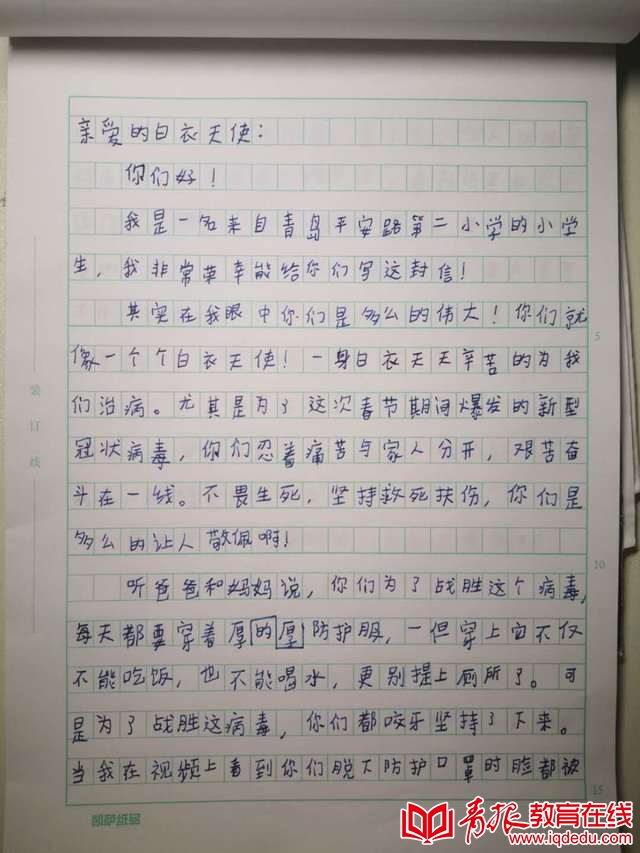 亲爱的白衣天使：
你们好！
我是一名来自青岛平安路第二小学的小学
生，我非常荣幸能给你们写这封信！
其实在我眼中你们是多么的伟大！你们就
像一个个白衣天使！一身白衣天天辛苦的为我
们治病。尤其是为了这次春节期间爆发的新型
冠状病毒，你们忍着痛苦与家人分开，艰苦奋
斗在一线。不畏生死，坚持救死扶伤，你们是
多么的让人敬佩啊！
听爸爸和妈妈说，你们为了战胜这个病毒，
每天都要穿着厚的厚防护服，一但穿上它不仅
不能吃饭，也不能喝水，更别提上厕所了。可
是为了战胜这病毒，你们都咬牙坚持了下来。
当我在视频上看到你们脱下防护口罩时脸都被
装订线
5
10
15
凯萨纸品
青报教育在线
www.iqdedu.com